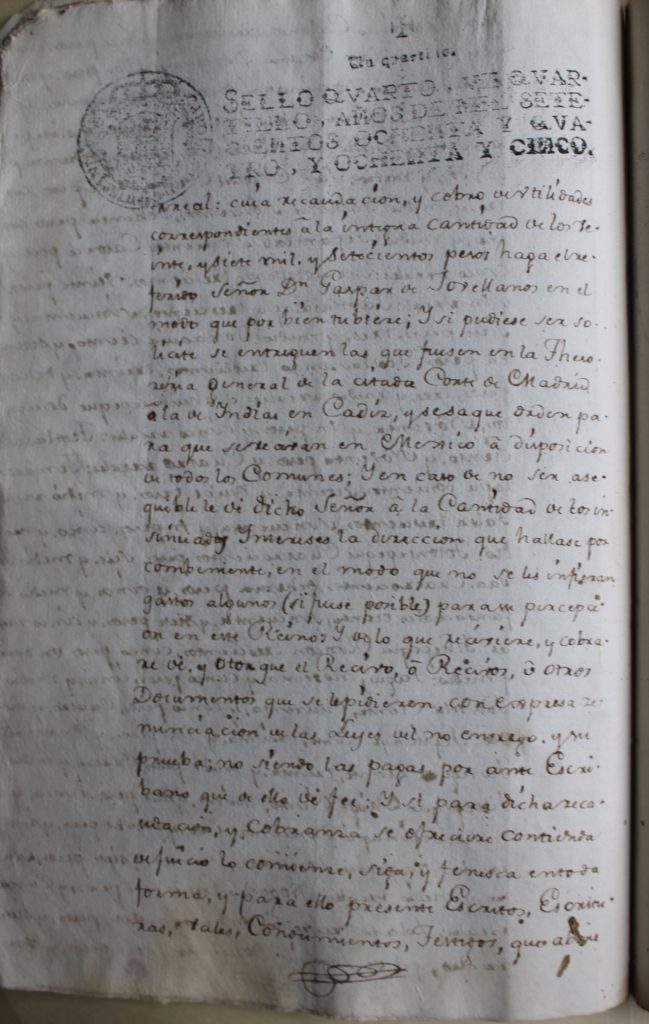 Un quartillo.
SELLO QVARTO, VN QVAR-
TILLO, AÑOS DE MIL SETE-
CIENTOS OCHENTA Y QVA-
TRO, Y OCHENTA Y CINCO.
rreal: cuia recaudación, y cobro de utilidades
correspondientes â la integra Cantidad de los Ve-
inte, y siete mil. y Setecientos pesos haga el re-
ferido Señor Dn Gaspar de Jovellanos en el
modo que por bien tubiere; Y si pudiese ser so-
licite se entreguen las que fuesen en la Theso-
reria general de la citada Corte de Madrid
â la de Indias en Cadiz, y se saque orden pa-
ra que se en Mexico â disposicion
de todos los Comunes; Y en caso de no ser ase-
quible le dé dicho Señor â la Cantidad de los in-
sinuados Intereses la direccion que hallase por
combeniente, en el modo que no se les infieran
gastos algunos (si fuese posible) para su percepci-
on en este Reino: Y de lo que reciviere, y cobra-
re dé. y otorgue el Recivo, ô Recivos, û otros
Documentos que se le pidieren, con expresa re-
nunciacion de las Leyes del no entrego. y su
prueba; no siendo las pagas por ante Escri-
bano que de ello dé feé: Y si para dicha reca-
udacion, y Cobranza se ofreciere contienda
de juicio lo comienze, siga, y fenesca en toda
forma, y para ello presente Escritos, Escritu-
ras, Vales, Conocimientos, Testigos, que